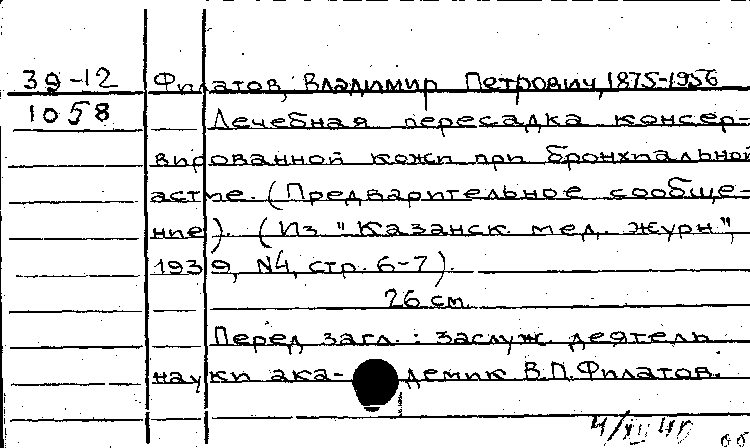 39-12 Филатов, Владимир Петрович, 1875-1956
1058 Лечебная пересадка консер-
вированной кожи при бронхиальной
астме. (Предварительное сообще-
ние). (Из "Казанск. мед. журн.",
1939, N4, стр. 6-7).
26 см.
Перед загл.: заслуж. деятель
науки ака-демик В.П. Филатов.